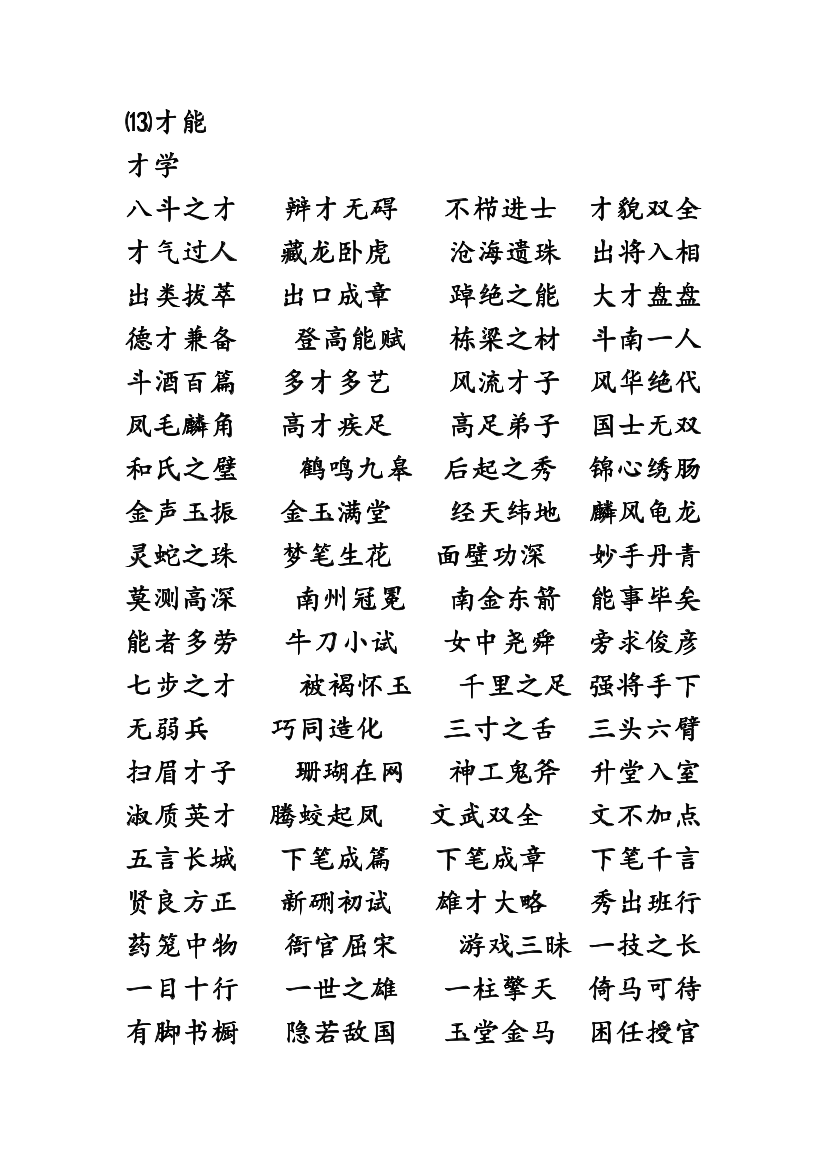 ⒀才能
才学
八斗之才 辩才无碍 不栉进士 才貌双全
才气过人 藏龙卧虎 沧海遗珠 出将入相
出类拔萃 出口成章 踔绝之能 大才盘盘
德才兼备 登高能赋 栋梁之材 斗南一人
斗酒百篇 多才多艺 风流才子 风华绝代
凤毛麟角 高才疾足 高足弟子 国士无双
和氏之璧 鹤鸣九皋 后起之秀 锦心绣肠
金声玉振 金玉满堂 经天纬地 麟风龟龙
灵蛇之珠 梦笔生花 面壁功深 妙手丹青
莫测高深 南州冠冕 南金东箭 能事毕矣
能者多劳 牛刀小试 女中尧舜 旁求俊彦
七步之才 被褐怀玉 千里之足 强将手下
无弱兵 巧同造化 三寸之舌 三头六臂
扫眉才子 珊瑚在网 神工鬼斧 升堂入室
淑质英才 腾蛟起凤 文武双全 文不加点
五言长城 下笔成篇 下笔成章 下笔千言
贤良方正 新硎初试 雄才大略 秀出班行
药笼中物 衙官屈宋 游戏三昧 一技之长
一目十行 一世之雄 一柱擎天 倚马可待
有脚书橱 隐若敌国 玉堂金马 困任授官